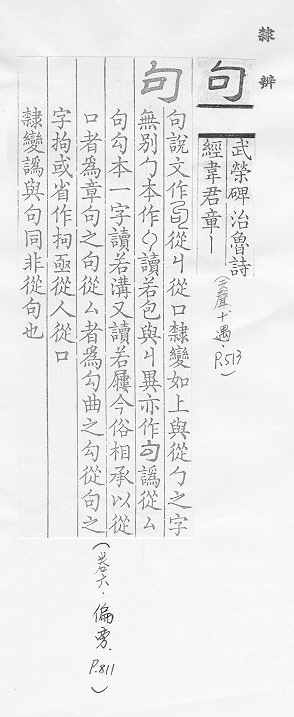 隸辨
句
武榮碑治魯詩
經韋君章丨
(去聲十遇.P.513)
句
句說文作從丩從口隸變如上與從勹之字
無別勹本作讀若包與丩異亦作句譌從厶
句勾本一字讀若溝又讀若屨今俗相承以從
口者爲章句之句從厶者爲勾曲之勾從句之
字拘或省作抅亟從人從口
隸變譌與句同非從句也
(卷六.偏旁.P.811)